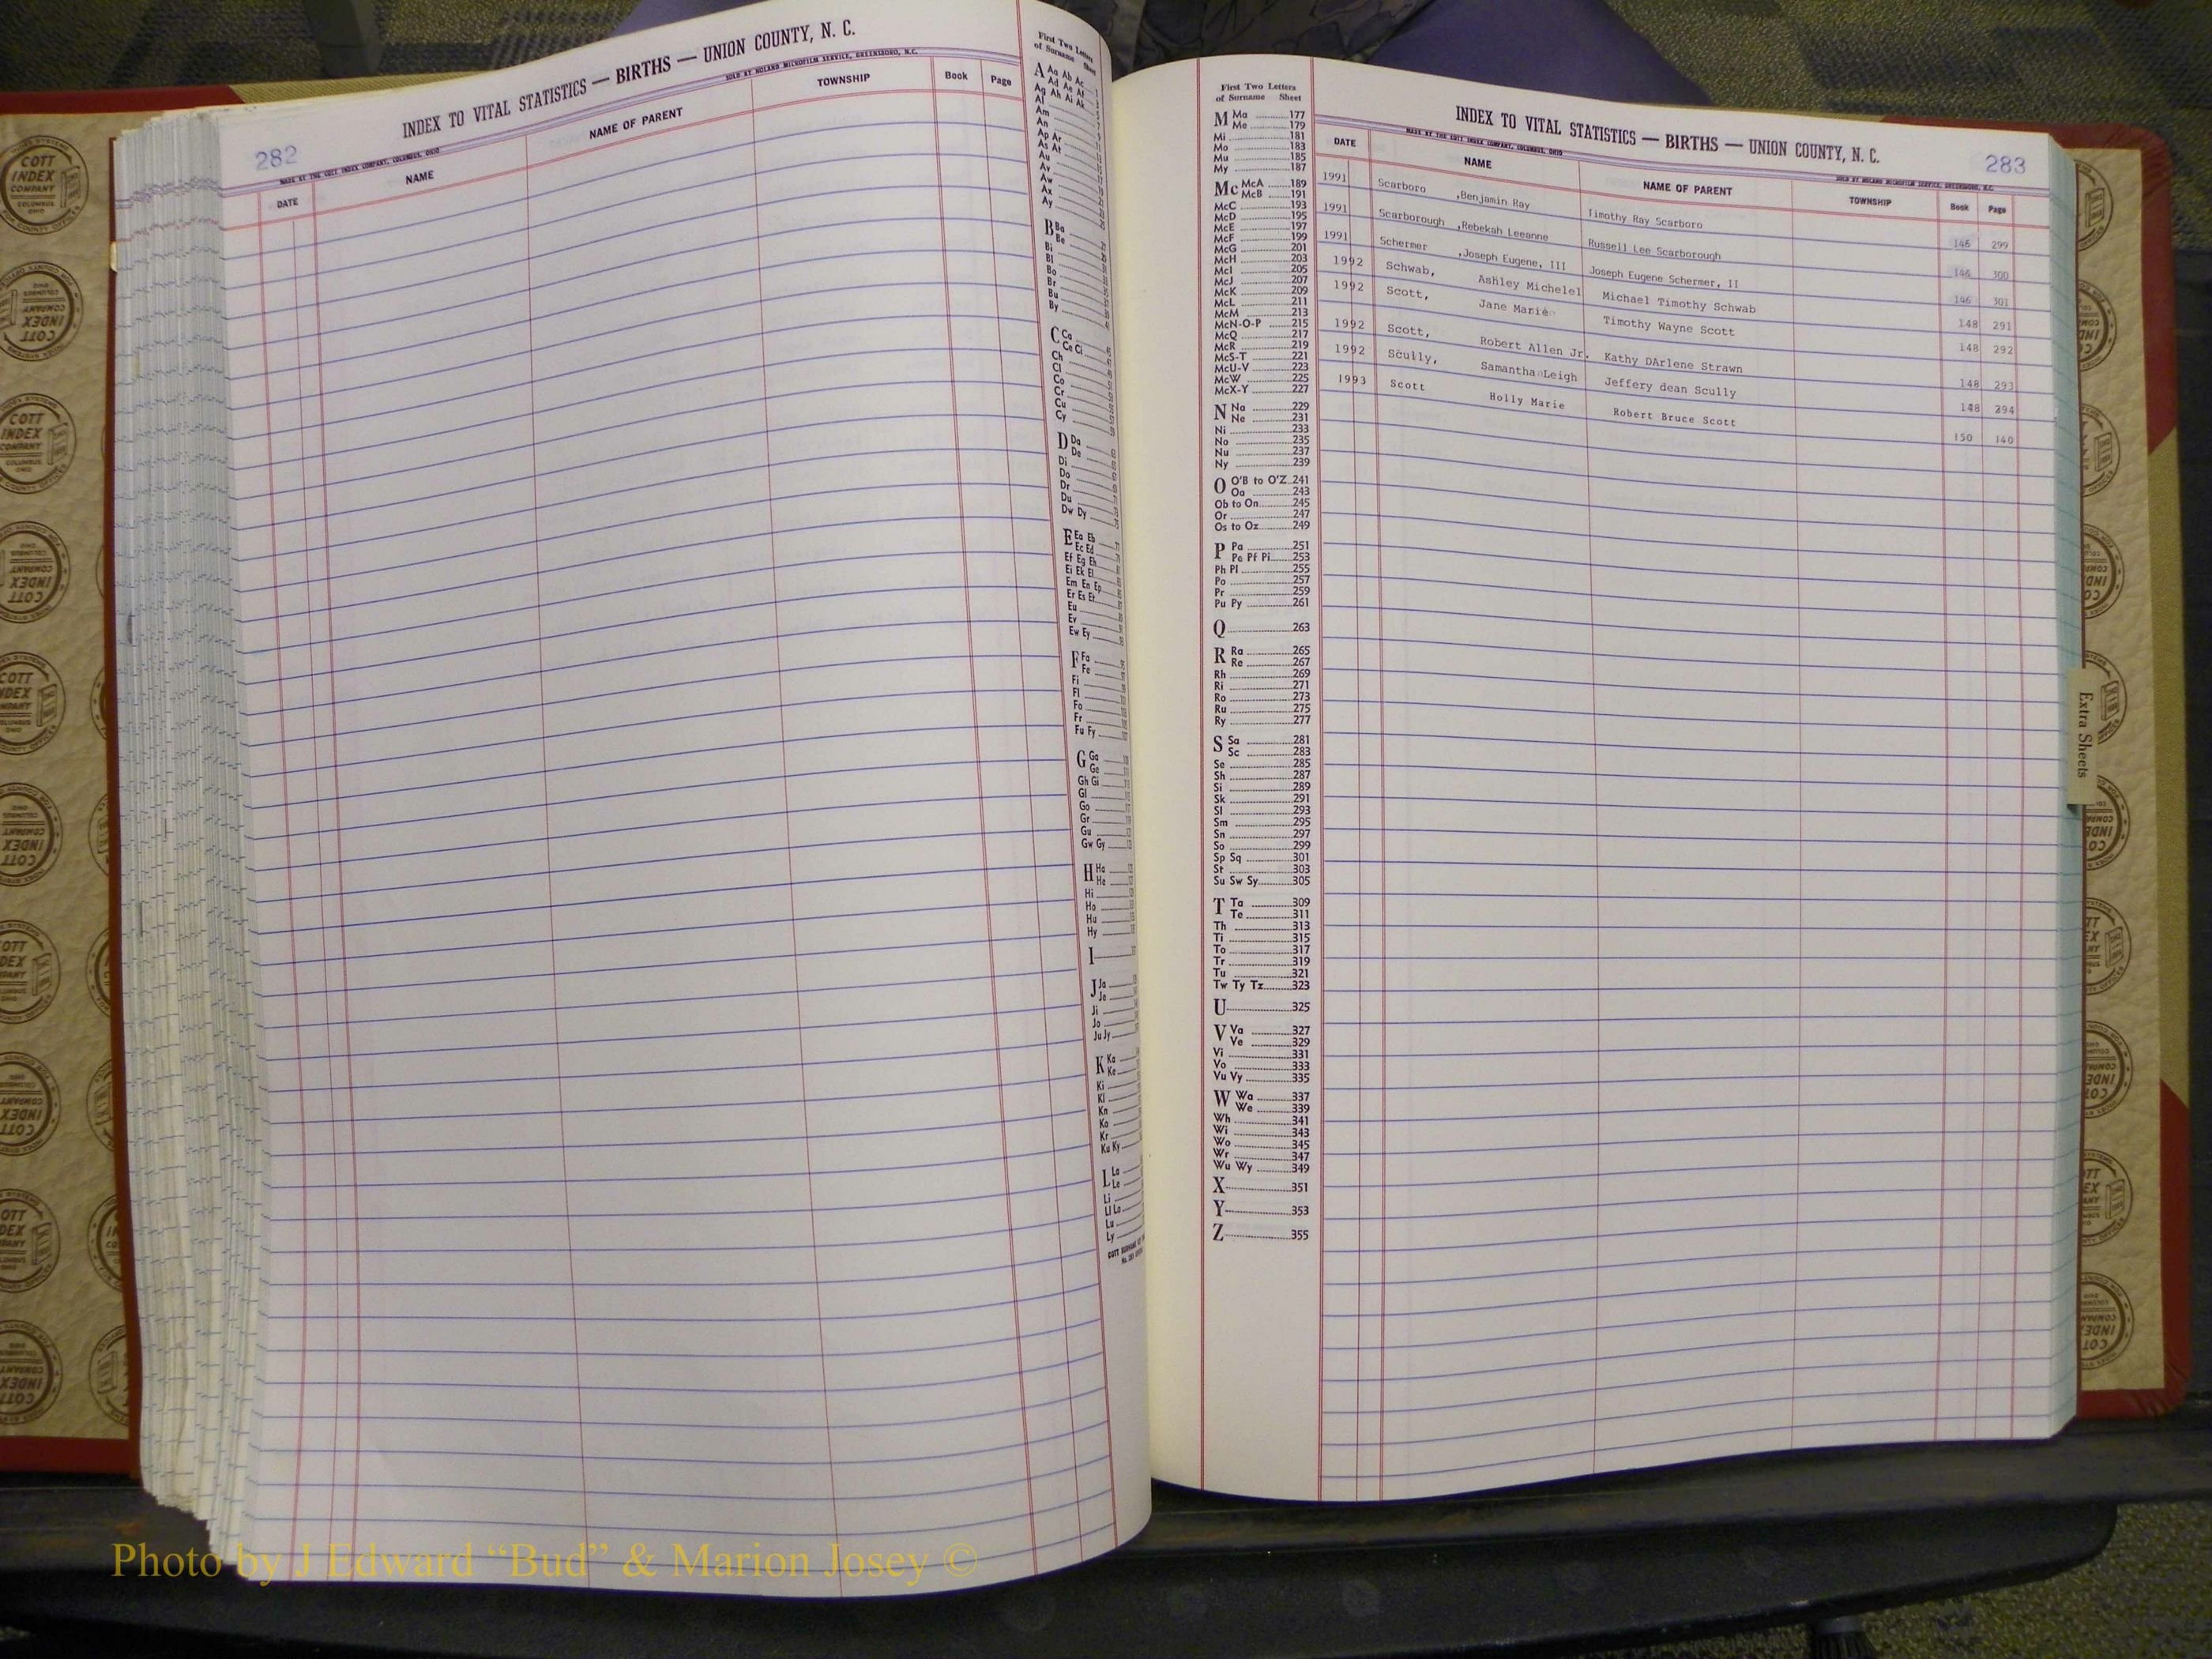 282
INDEX TO VITAL STATISTICS — BIRTHS — UNION COUNTY, N. C.
MADE BY THE COTT INDEX COMPANY, COLUMBUS, OHIO
SOLD BY NOLAND MICROFILM SERVICE, GREENSBORO, N.C.
DATE NAME NAME OF PARENT TOWNSHIP Book Page
First Two Letters
of Surname Sheet
A Aa Ab Ac
Ad Ae Af
Ag Ah Ai Ak
Al
Am
An
Ap Ar
As At
Au
Av
Aw
Ax
Ay
B Ba
Be
Bi
Bl
Bo
Br
Bu
By
C Ca
Ce Ci
Ch
Cl
Co
Cr
Cu
Cy
D Da
De
Di
Do
Dr
Du
Dw Dy
E Ea Eb
Ec Ed
Ef Eg Eh
Ei Ek El
Em En Ep
Er Es Et
Eu
Ev
Ew Ey
F Fa
Fe
Fi
Fl
Fo
Fr
Fu Fy
G Ga
Ge
Gh Gi
Gl
Go
Gr
Gu
Gw Gy
H Ha
He
Hi
Ho
Hu
Hy
I
J Ja
Je
Ji
Jo
Ju Jy
K Ka
Ke
Ki
Kl
Kn
Ko
Kr
Ku Ky
L La
Le
Li
Ll Lo
Lu
Ly
First Two Letters
of Surname Sheet
M Ma 177
Me 179
Mi 181
Mo 183
Mu 185
My 187
Mc McA 189
McB 191
McC 193
McD 195
McE 197
McF 199
McG 201
McH 203
McI 205
McJ 207
McK 209
McL 211
McM 213
McN-O-P 215
McQ 217
McR 219
McS-T 221
McU-V 223
McW 225
McX-Y 227
N Na 229
Ne 231
Ni 233
No 235
Nu 237
Ny 239
O O'B to O'Z 241
Oa 243
Ob to On 245
Or 247
Os to Oz 249
P Pa 251
Pe Pf Pi 253
Ph Pl 255
Po 257
Pr 259
Pu Py 261
Q 263
R Ra 265
Re 267
Rh 269
Ri 271
Ro 273
Ru 275
Ry 277
S Sa 281
Sc 283
Se 285
Sh 287
Si 289
Sk 291
Sl 293
Sm 295
Sn 297
So 299
Sp Sq 301
St 303
Su Sw Sy 305
T Ta 309
Te 311
Th 313
Ti 315
To 317
Tr 319
Tu 321
Tw Ty Tz 323
U 325
V Va 327
Ve 329
Vi 331
Vo 333
Vu Vy 335
W Wa 337
We 339
Wh 341
Wi 343
Wo 345
Wr 347
Wu Wy 349
X 351
Y 353
Z 355
INDEX TO VITAL STATISTICS — BIRTHS — UNION COUNTY, N. C.
283
MADE BY THE COTT INDEX COMPANY, COLUMBUS, OHIO
SOLD BY NOLAND MICROFILM SERVICE, GREENSBORO, N.C.
DATE NAME NAME OF PARENT TOWNSHIP Book Page
1991 Scarboro ,Benjamin Ray Timothy Ray Scarboro 146 299
1991 Scarborough ,Rebekah Leeanne Russell Lee Scarborough 146 300
1991 Schermer ,Joseph Eugene, III Joseph Eugene Schermer, II 146 301
1992 Schwab, Ashley Michelel Michael Timothy Schwab 148 291
1992 Scott, Jane Marie Timothy Wayne Scott 148 292
1992 Scott, Robert Allen Jr. Kathy DArlene Strawn 148 293
1992 Scully, Samantha Leigh Jeffery dean Scully 148 294
1993 Scott Holly Marie Robert Bruce Scott 150 140
Extra Sheets
COTT
INDEX
COMPANY
COLUMBUS
OHIO
Photo by J Edward “Bud” & Marion Josey ©